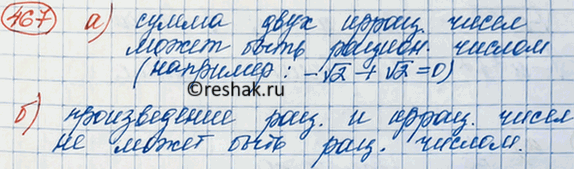 467 а) сумма двух иррац. чисел
может быть рацион. числом
(например: -√2 + √2 = 0)
©reshak.ru
б) произведение рац. и иррац. чисел
не может быть рац. числом.